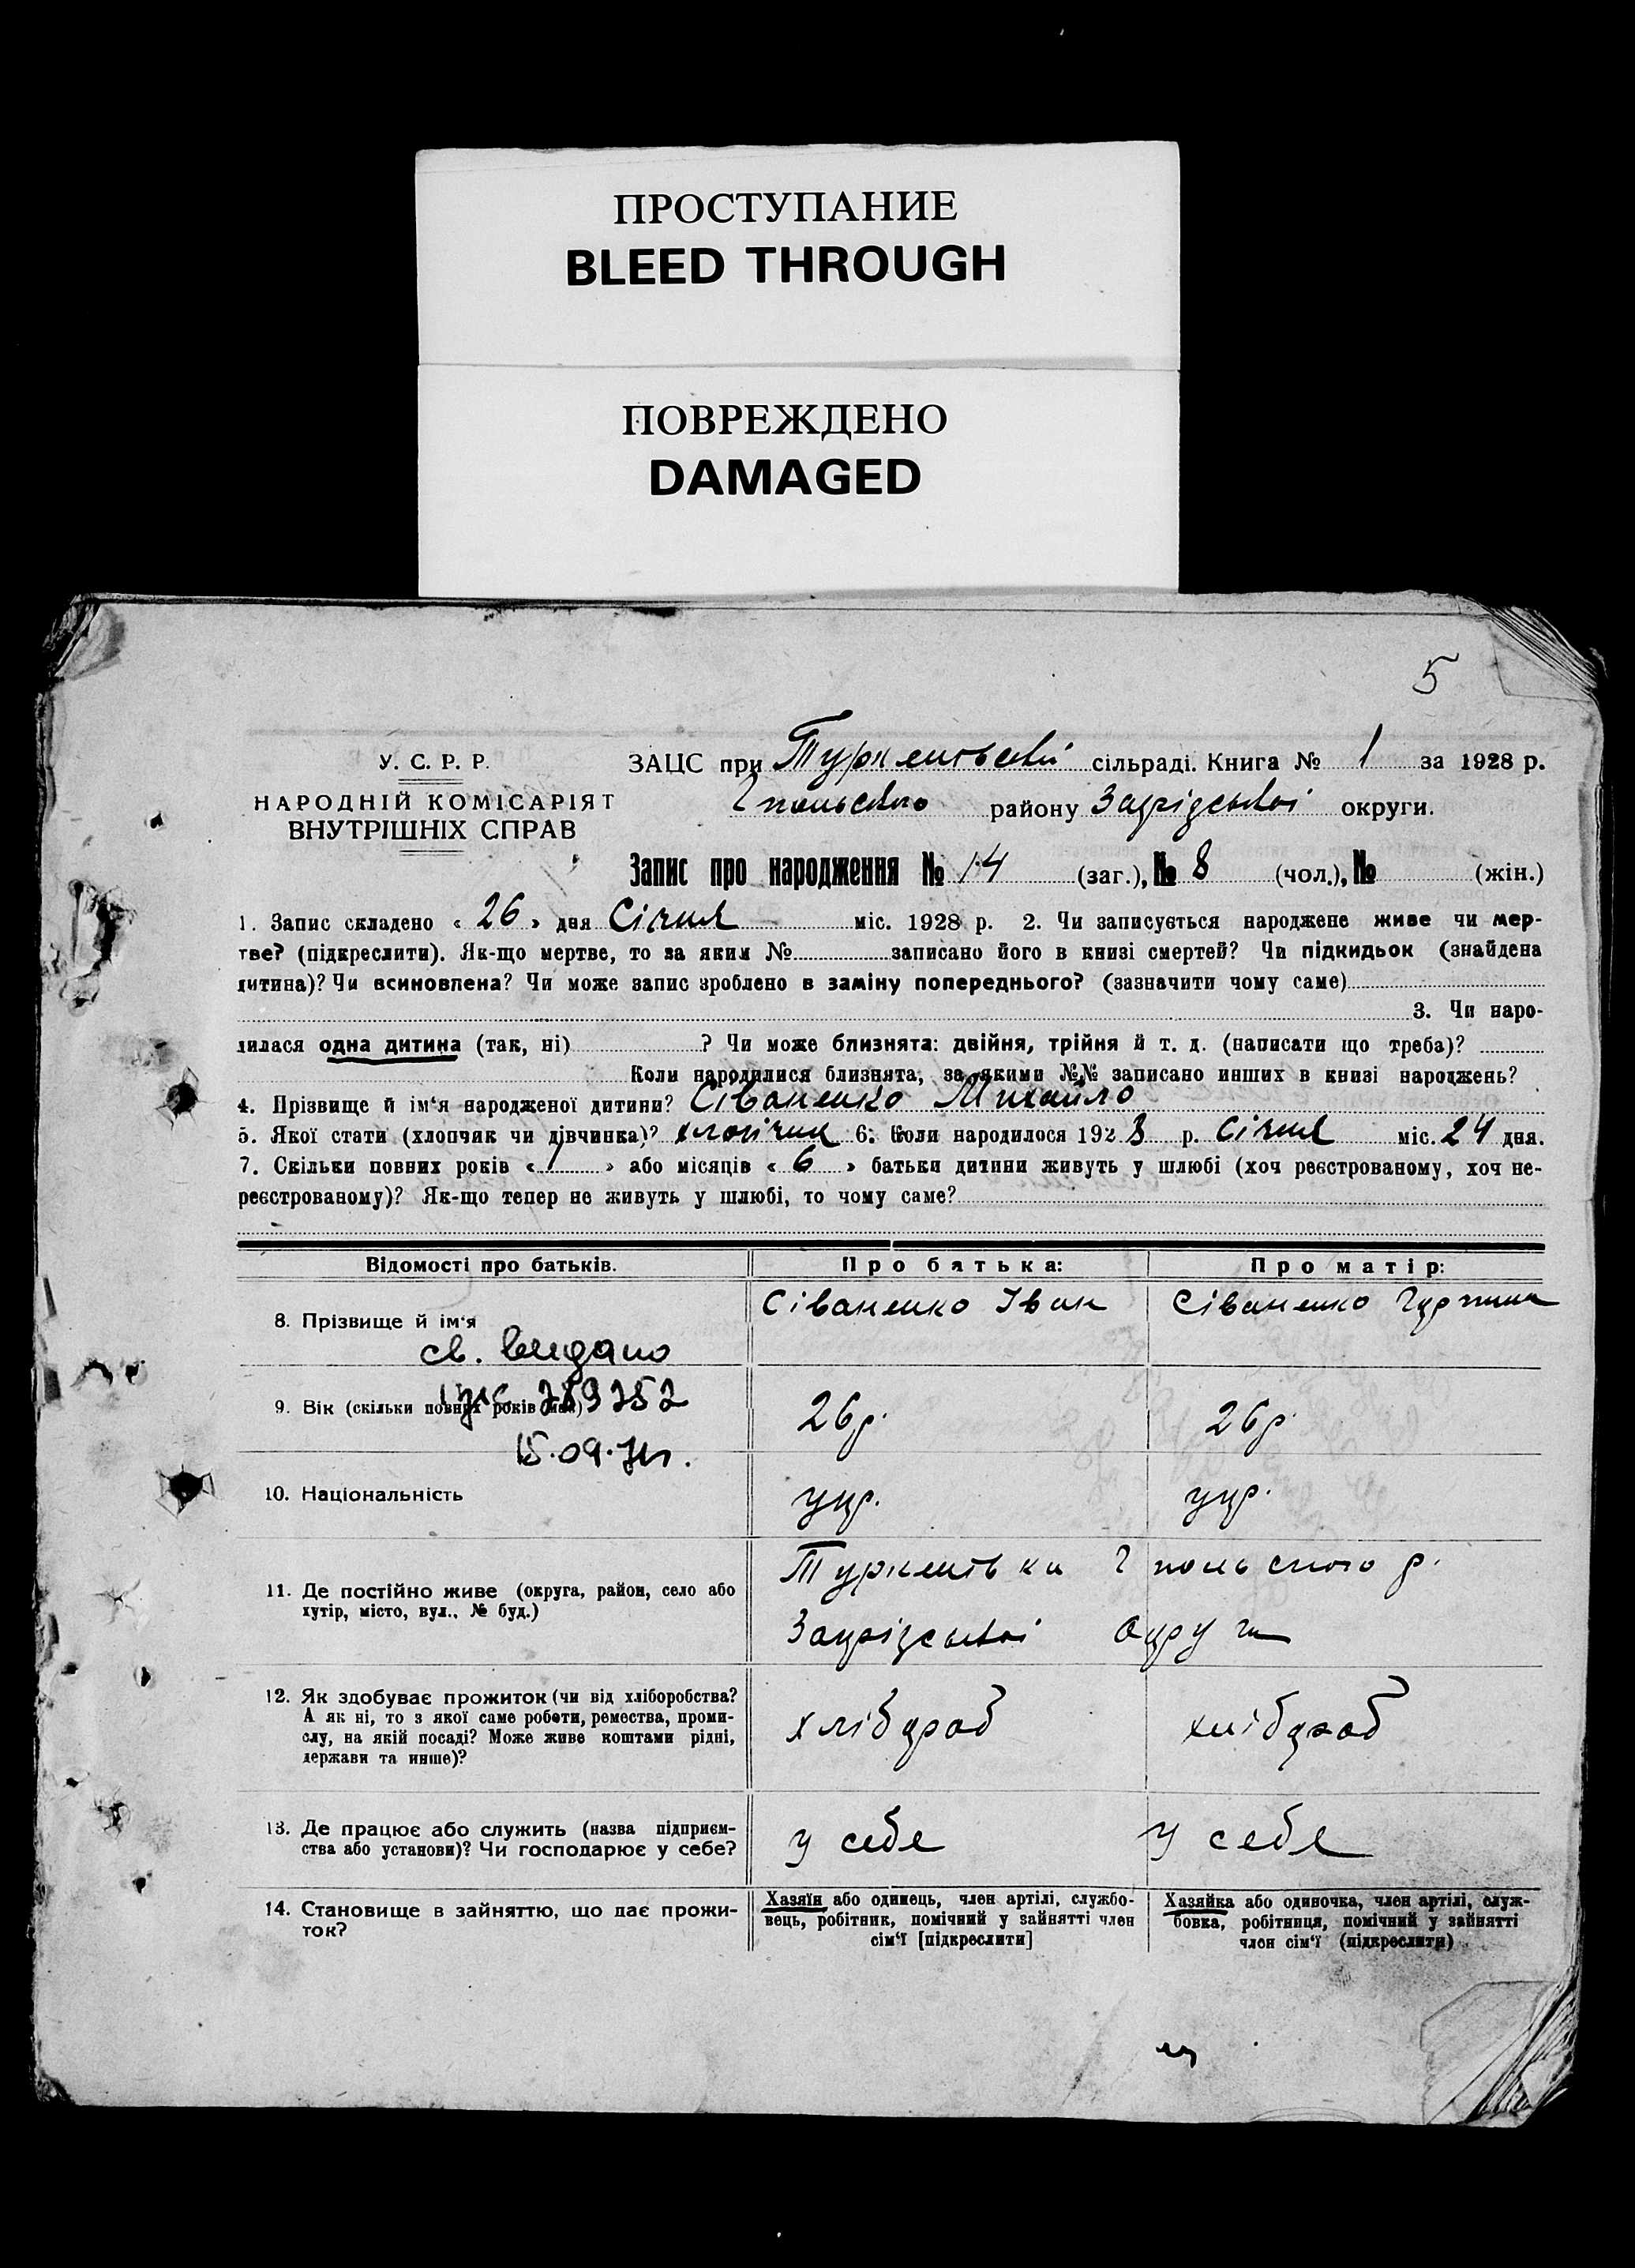 ПРОСТУПАНИЕ
BLEED THROUGH
ПОВРЕЖДЕНО
DAMAGED
5
У. С. Р. Р.
НАРОДНІЙ КОМІСАРІЯТ
ВНУТРІШНІХ СПРАВ
ЗАЦС при сільраді. Книга № 1 за 1928 р.
району округи.
Запис про народження № 14 (заг.), № 8 (чол.), № (жін.)
1. Запис складено « 26 » дня Січня міс. 1928 р. 2. Чи записується народжене живе чи мер-
тве? (підкреслити). Як-що мертве, то за яким № записано його в книзі смертей? Чи підкидьок (знайдена
дитина)? Чи всиновлена? Чи може запис зроблено в заміну попереднього? (зазначити чому саме)
3. Чи наро-
дилася одна дитина (так, ні) ? Чи може близнята: двійня, трійня й т. д. (написати що треба)?
Коли народилися близнята, за якими №№ записано инших в книзі народжень?
4. Прізвище й ім'я народженої дитини? Сіваненко Михайло
5. Якої стати (хлопчик чи дівчинка)? хлопчик 6. Коли народилося 1928 р. Січня міс. 24 дня.
7. Скільки повних років « 1 » або місяців « 6 » батьки дитини живуть у шлюбі (хоч реєстрованому, хоч не-
реєстрованому)? Як-що тепер не живуть у шлюбі, то чому саме?
Відомості про батьків. Про батька: Про матір:
8. Прізвище й ім'я Сіваненко Іван Сіваненко
св. видано
9. Вік (скільки повних років має) 26 р. 26 р.
15.09.71г.
10. Національність укр. укр.
11. Де постійно живе (округа, район, село або
хутір, місто, вул., № буд.)
округи
12. Як здобуває прожиток (чи від хліборобства?
А як ні, то з якої саме роботи, ремества, проми-
слу, на якій посаді? Може живе коштами рідні,
держави та инше)?
хлібороб хлібороб
13. Де працює або служить (назва підприєм-
ства або установи)? Чи господарює у себе?
у себе у себе
14. Становище в зайняттю, що дає прожи-
ток?
Хазяїн або одинець, член артілі, службо-
вець, робітник, помічний у зайнятті член
сім'ї [підкреслити]
Хазяйка або одиночка, член артілі, служ-
бовка, робітниця, помічний у зайнятті
член сім'ї (підкреслити)